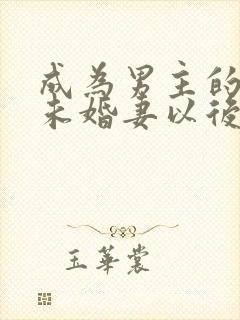 成為男主的
未婚妻以後
玉華裳